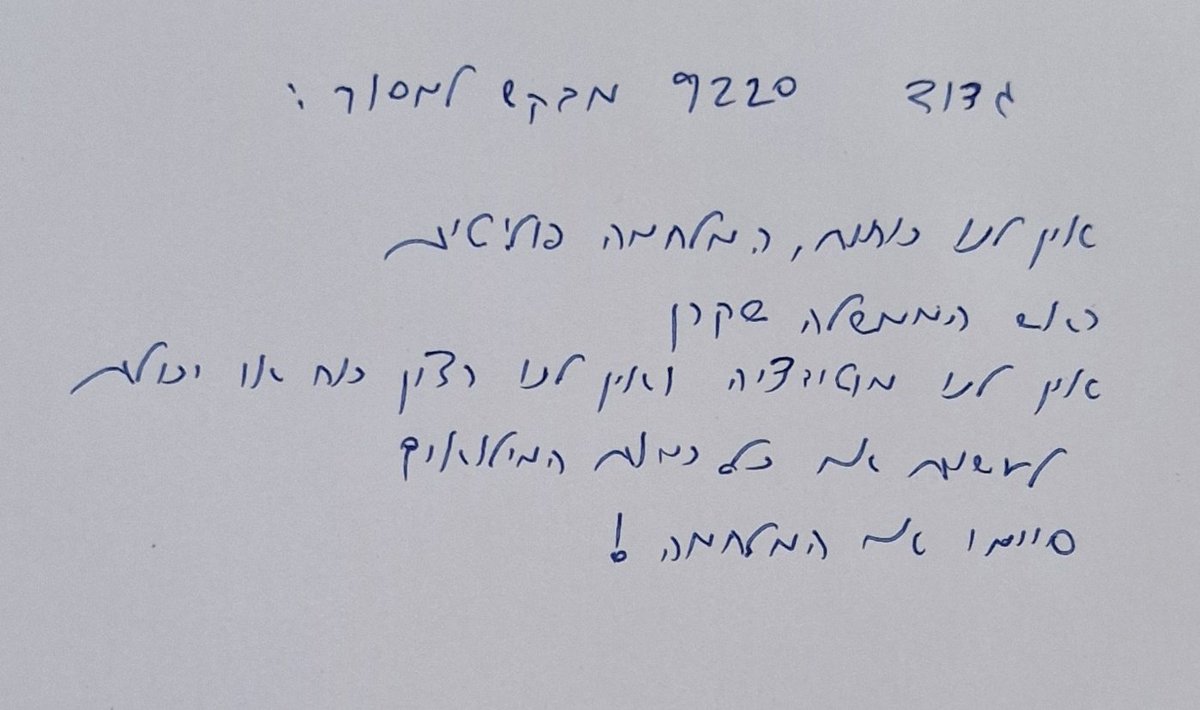 גדוד 9220 מבקש למסור:
אין לנו כוחות, המלחמה פוליטית
ראש הממשלה שקרן
אין לנו מוטיבציה ואין לנו רצון כוח או יכולת
לעשות את כל כמות המילואים
סיימו את המלחמה!